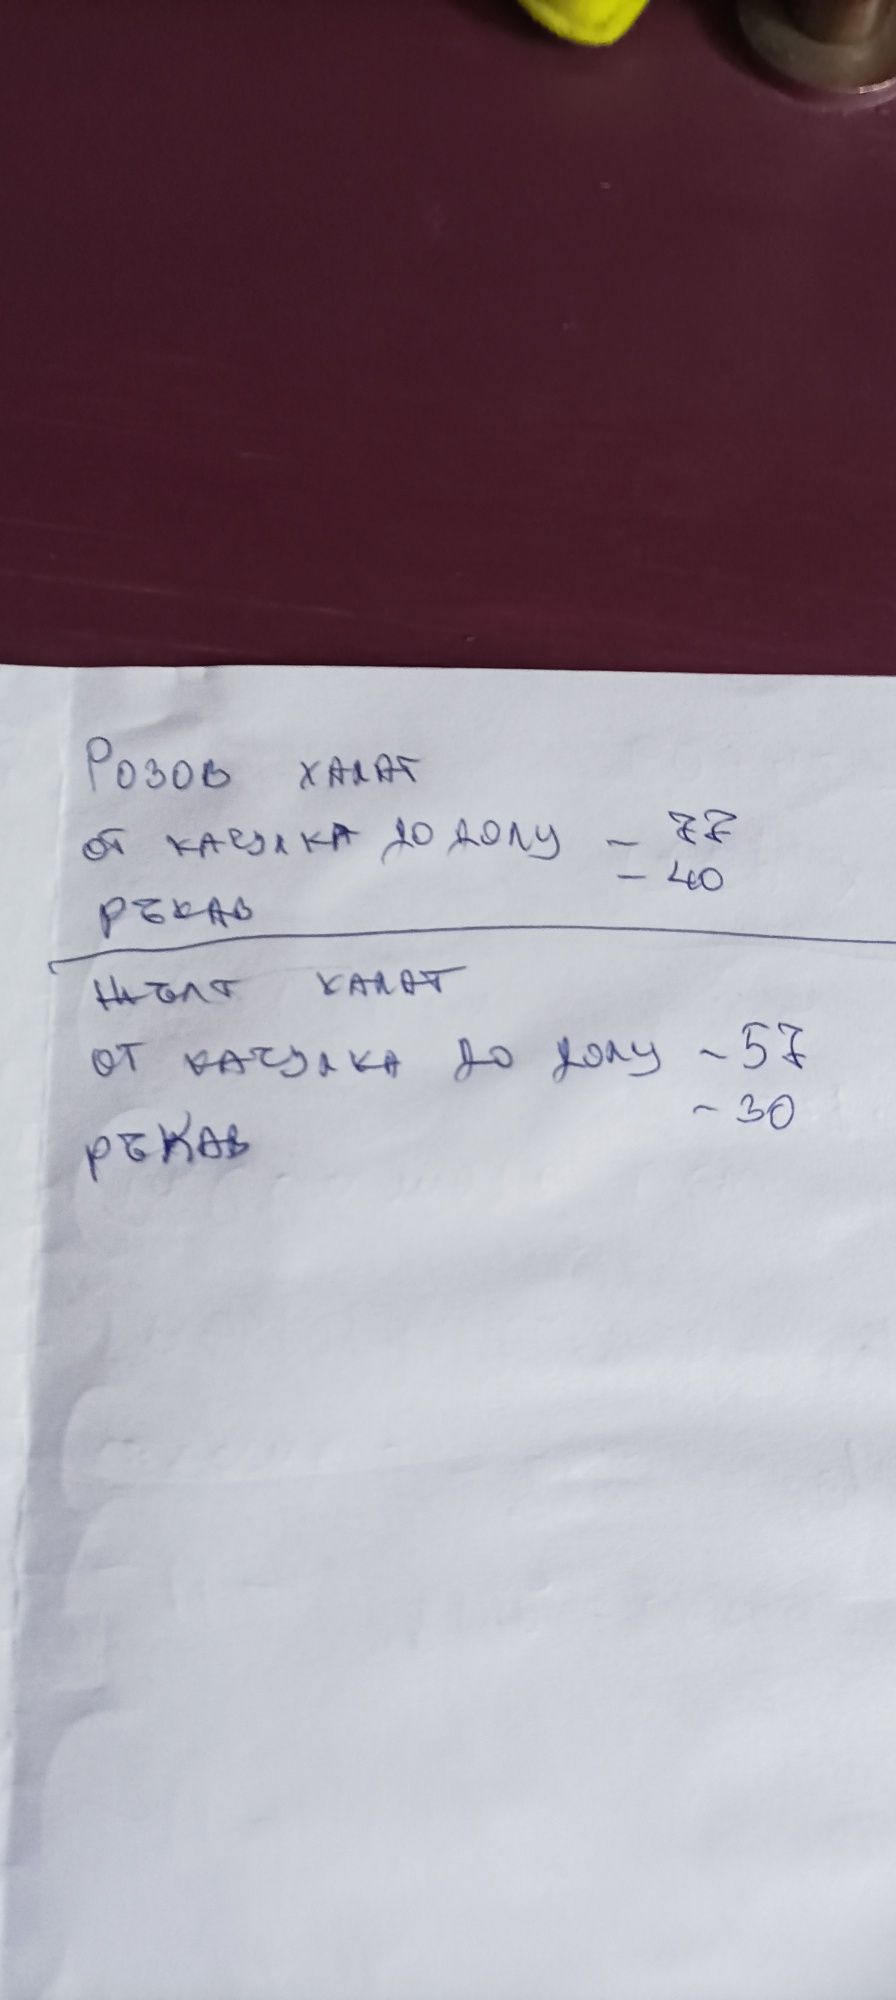 Розов халат
от качулка до долу - 77
ръкав - 40
Жълт халат
от качулка до долу - 57
ръкав - 30